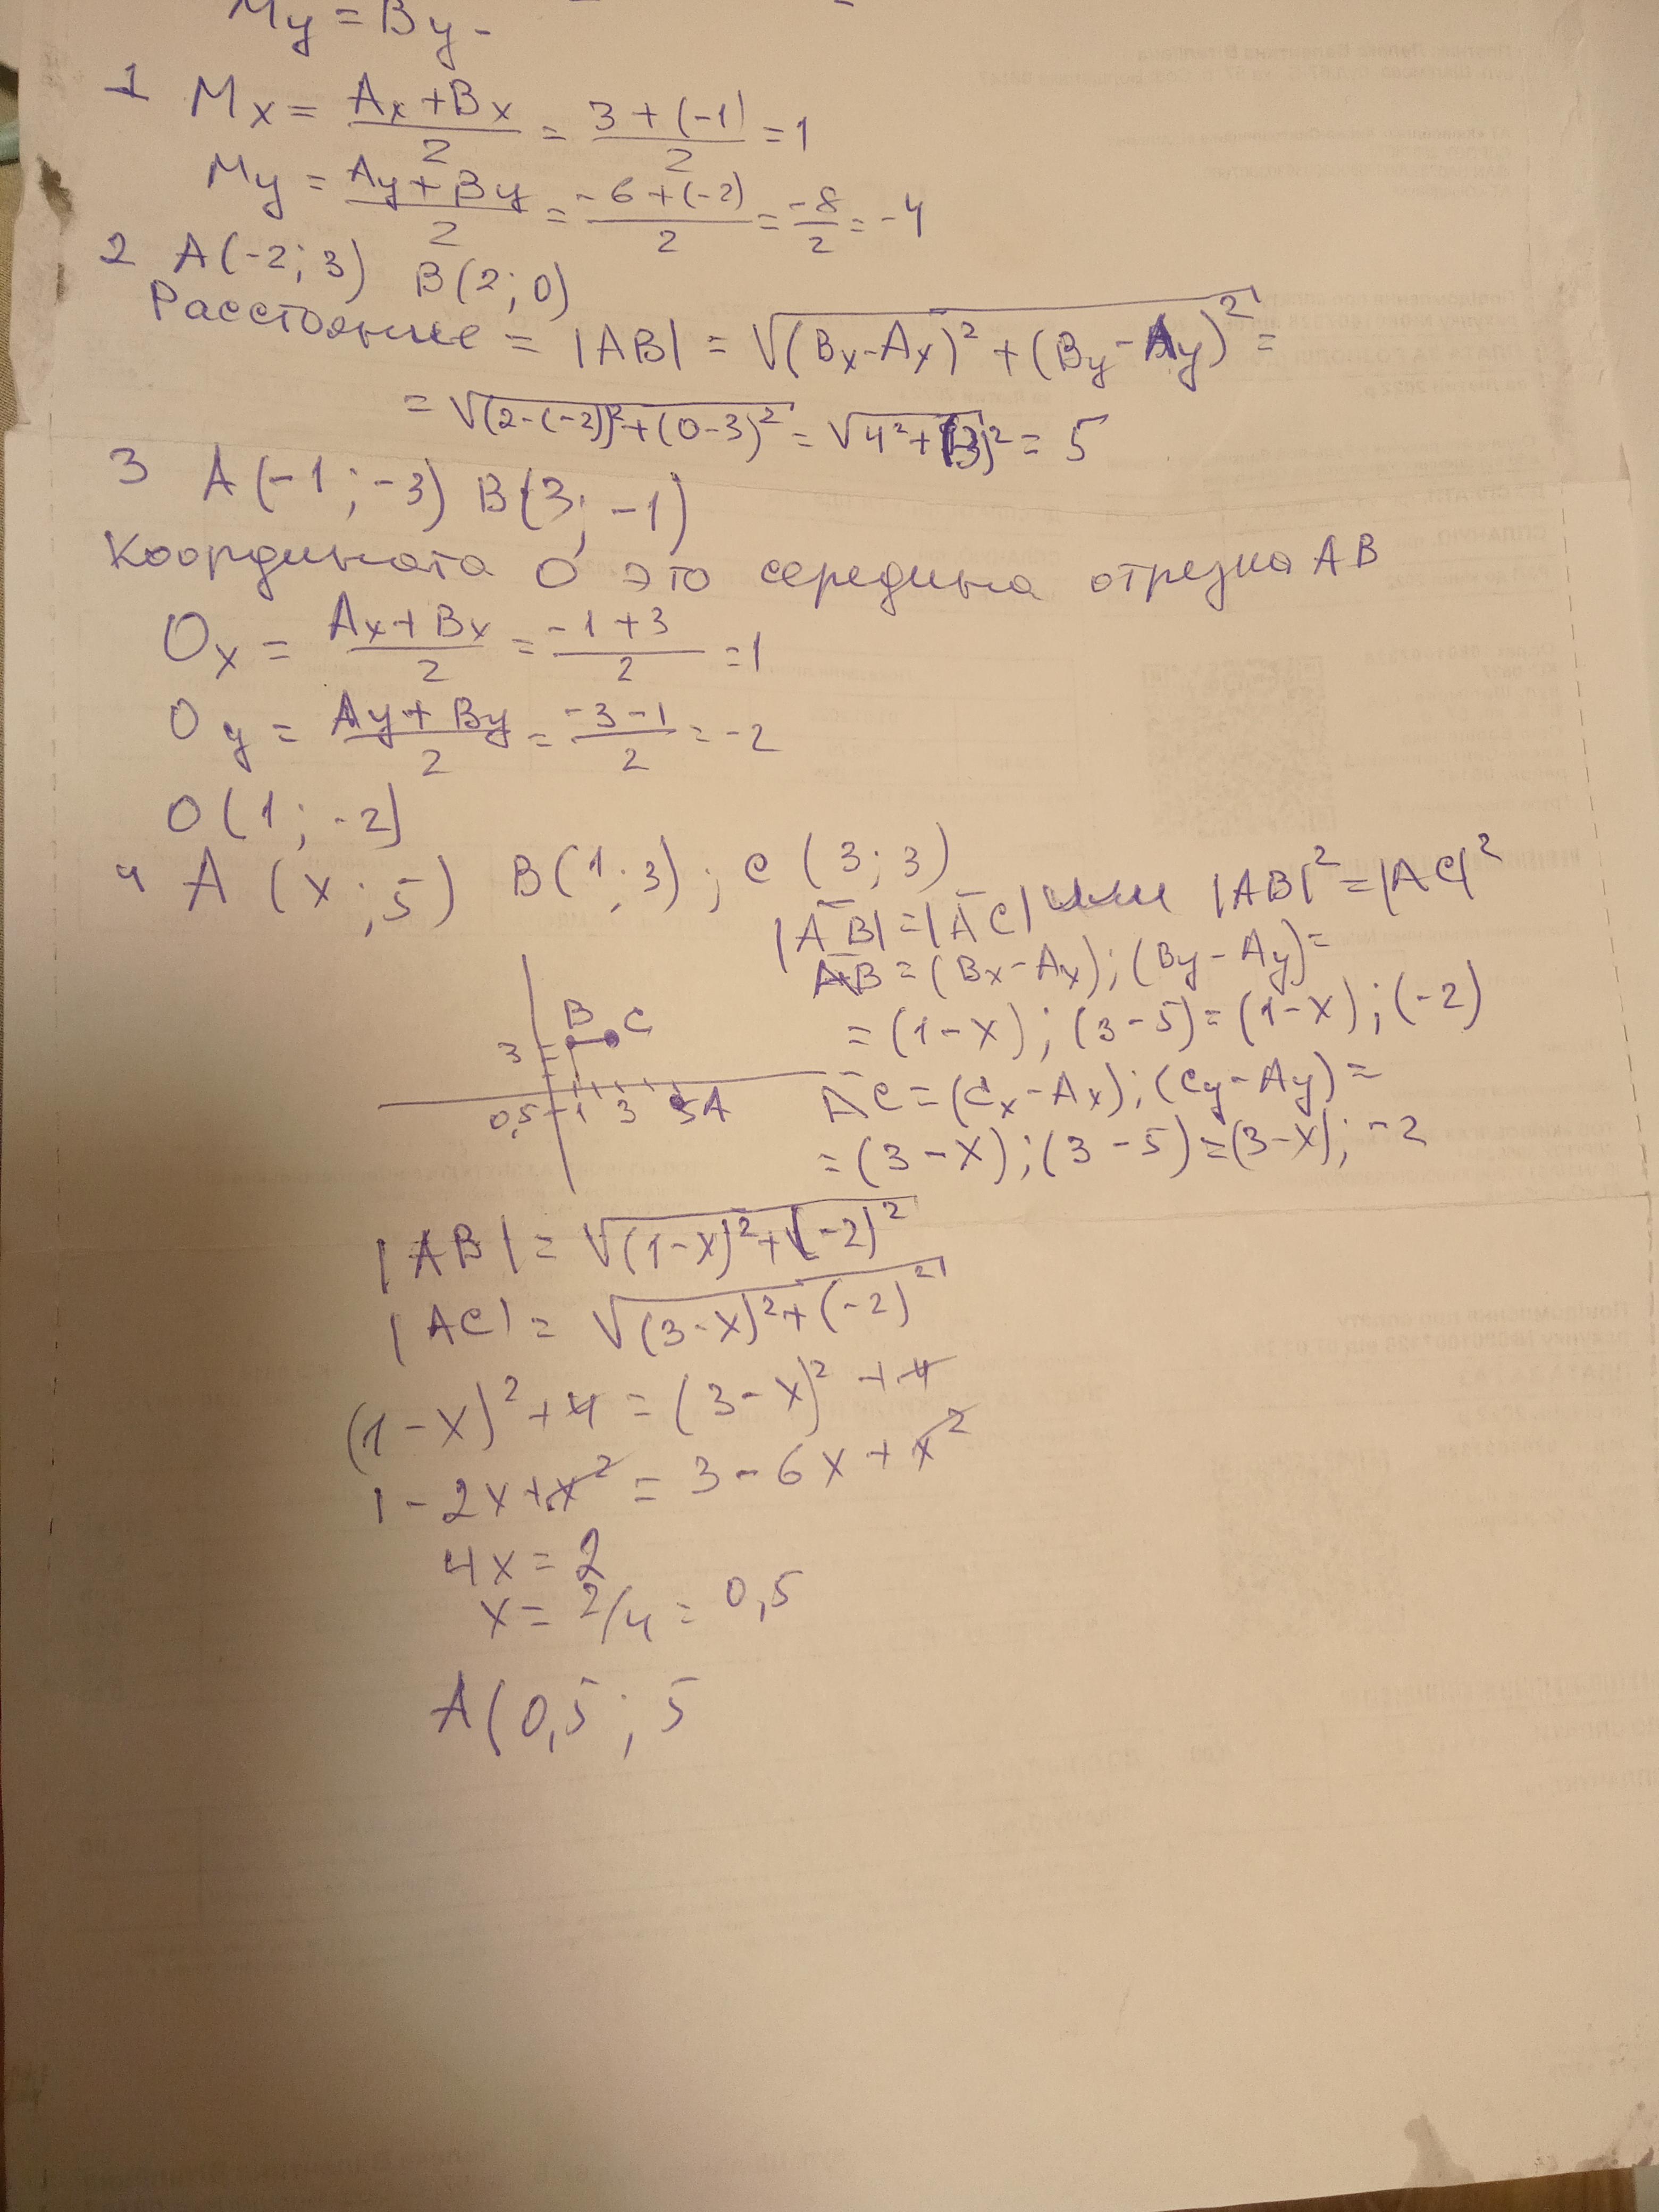 My = By -
1 Mx = (Ax + Bx)/2 = (3 + (-1))/2 = 1
My = (Ay + By)/2 = (-6 + (-2))/2 = -8/2 = -4
2 A(-2; 3) B(2; 0)
Расстояние = |AB| = √((Bx - Ax)² + (By - Ay)²) =
= √((2-(-2))² + (0-3)²) = √(4² + (3)²) = 5
3 A(-1; -3) B(3; -1)
Координата O это середина отрезка AB
Ox = (Ax + Bx)/2 = (-1 + 3)/2 = 1
Oy = (Ay + By)/2 = (-3 - 1)/2 = -2
O(1; -2)
4 A(x; 5) B(1; 3); C(3; 3)
|AB| = |AC| или |AB|² = |AC|²
AB = (Bx - Ax); (By - Ay) =
= (1 - x); (3 - 5) = (1 - x); (-2)
AC = (Cx - Ax); (Cy - Ay) =
= (3 - x); (3 - 5) = (3 - x); -2
B C
3
0,5 1 3 5 A
|AB| = √((1 - x)² + (-2)²)
|AC| = √((3 - x)² + (-2)²)
(1 - x)² + 4 = (3 - x)² + 4
1 - 2x + x² = 3 - 6x + x²
4x = 2
x = 2/4 = 0,5
A(0,5; 5